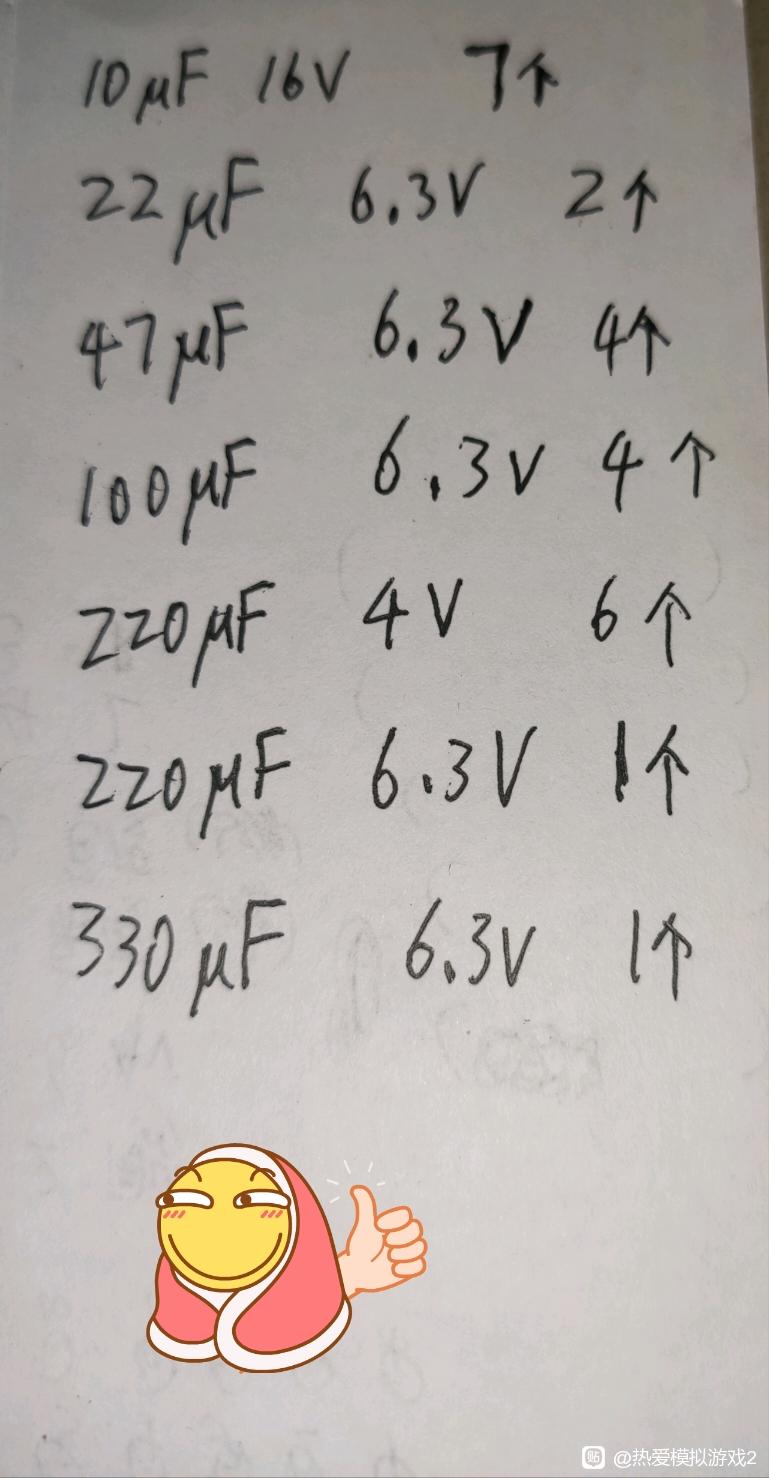 10μF 16V 7个
22μF 6.3V 2个
47μF 6.3V 4个
100μF 6.3V 4个
220μF 4V 6个
220μF 6.3V 1个
330μF 6.3V 1个
贴 @热爱模拟游戏2